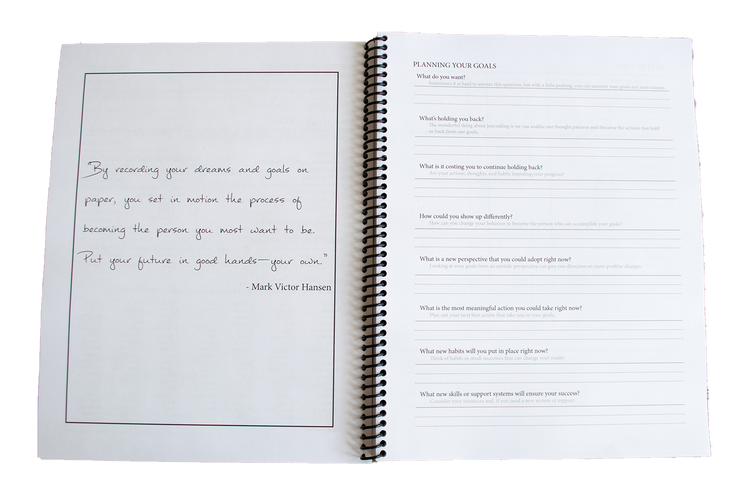 "By recording your dreams and goals on
paper, you set in motion the process of
becoming the person you most want to be.
Put your future in good hands—your own."
- Mark Victor Hansen
PLANNING YOUR GOALS
What do you want?
Sometimes it is hard to answer this question, but with a little pushing, you can uncover your goals and
What's holding you back?
The wonderful thing about journaling is we can
or back from our goals.
What is it costing you to continue holding back?
Are your actions, thoughts, and habits impeding your progress?
How could you show up differently?
How can you change your behavior to become the person who can accomplish your goals?
What is a new perspective that you could adopt right now?
Looking at your goals from an outside perspective can give you direction
What is the most meaningful action you could take right now?
Plan out your next best action that take you to your goals.
What new habits will you put in place right now?
Think of habits or small successes that can change your
What new skills or support systems will ensure your success?
Consider your resources and, if you need a new system or support.